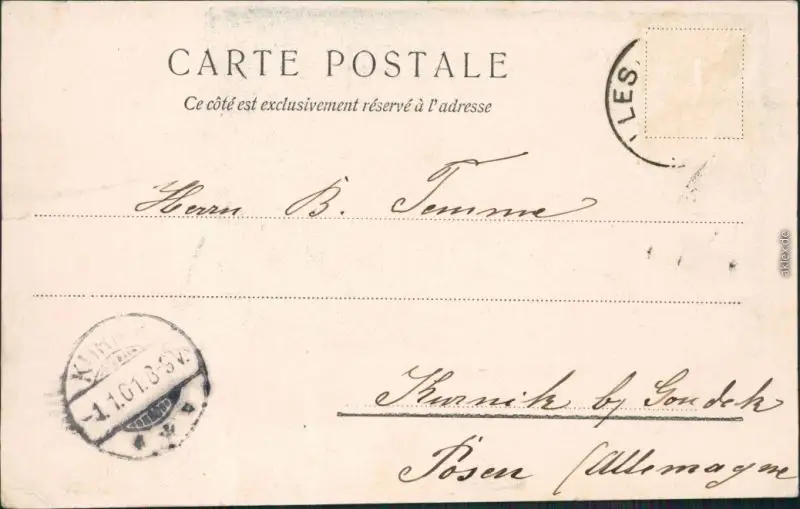 CARTE POSTALE
Ce côté est exclusivement réservé à l'adresse
LES
Herrn B. Temme
Kurnik by Gondek
Posen (Allemagne
1.1.01.8-9V.
akpool.de